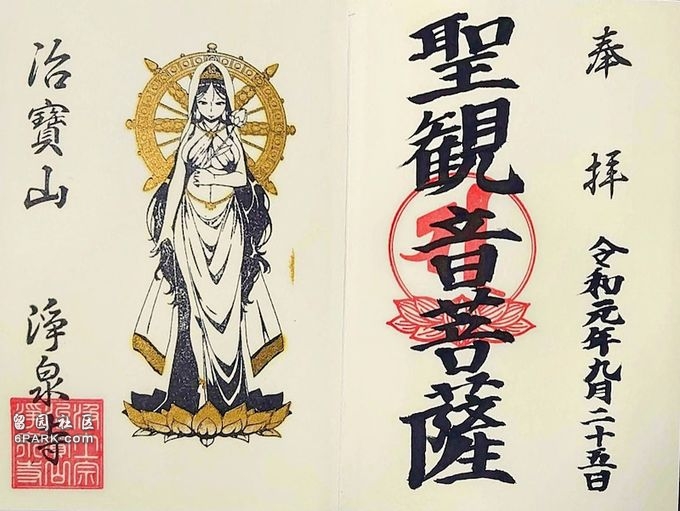 奉拝
令和元年九月二十五日
聖観音菩薩
治寶山
淨泉寺
留园社区
6PARK.COM